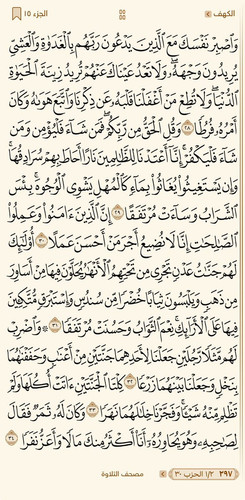 الكهف
الجزء ١٥
وَٱصْبِرْ نَفْسَكَ مَعَ ٱلَّذِينَ يَدْعُونَ رَبَّهُم بِٱلْغَدَوٰةِ وَٱلْعَشِيِّ
يُرِيدُونَ وَجْهَهُۥۖ وَلَا تَعْدُ عَيْنَاكَ عَنْهُمْ تُرِيدُ زِينَةَ ٱلْحَيَوٰةِ
ٱلدُّنْيَاۖ وَلَا تُطِعْ مَنْ أَغْفَلْنَا قَلْبَهُۥ عَن ذِكْرِنَا وَٱتَّبَعَ هَوَىٰهُ وَكَانَ
أَمْرُهُۥ فُرُطًا ٢٨ وَقُلِ ٱلْحَقُّ مِن رَّبِّكُمْۖ فَمَن شَآءَ فَلْيُؤْمِن وَمَن
شَآءَ فَلْيَكْفُرْۚ إِنَّآ أَعْتَدْنَا لِلظَّٰلِمِينَ نَارًا أَحَاطَ بِهِمْ سُرَادِقُهَاۚ
وَإِن يَسْتَغِيثُوا۟ يُغَاثُوا۟ بِمَآءٍ كَٱلْمُهْلِ يَشْوِى ٱلْوُجُوهَۚ بِئْسَ
ٱلشَّرَابُ وَسَآءَتْ مُرْتَفَقًا ٢٩ إِنَّ ٱلَّذِينَ ءَامَنُوا۟ وَعَمِلُوا۟
ٱلصَّٰلِحَٰتِ إِنَّا لَا نُضِيعُ أَجْرَ مَنْ أَحْسَنَ عَمَلًا ٣٠ أُو۟لَٰٓئِكَ
لَهُمْ جَنَّٰتُ عَدْنٍ تَجْرِى مِن تَحْتِهِمُ ٱلْأَنْهَٰرُ يُحَلَّوْنَ فِيهَا مِنْ أَسَاوِرَ
مِن ذَهَبٍ وَيَلْبَسُونَ ثِيَابًا خُضْرًا مِّن سُندُسٍ وَإِسْتَبْرَقٍ مُّتَّكِـِٔينَ
فِيهَا عَلَى ٱلْأَرَآئِكِۚ نِعْمَ ٱلثَّوَابُ وَحَسُنَتْ مُرْتَفَقًا ٣١ ۞ وَٱضْرِبْ
لَهُم مَّثَلًا رَّجُلَيْنِ جَعَلْنَا لِأَحَدِهِمَا جَنَّتَيْنِ مِنْ أَعْنَٰبٍ وَحَفَفْنَٰهُمَا
بِنَخْلٍ وَجَعَلْنَا بَيْنَهُمَا زَرْعًا ٣٢ كِلْتَا ٱلْجَنَّتَيْنِ ءَاتَتْ أُكُلَهَا وَلَمْ
تَظْلِم مِّنْهُ شَيْـًٔاۚ وَفَجَّرْنَا خِلَٰلَهُمَا نَهَرًا ٣٣ وَكَانَ لَهُۥ ثَمَرٌ فَقَالَ
لِصَٰحِبِهِۦ وَهُوَ يُحَاوِرُهُۥٓ أَنَا۠ أَكْثَرُ مِنكَ مَالًا وَأَعَزُّ نَفَرًا ٣٤
٢٩٧ ١/٢ الحزب ٣٠
مصحف التلاوة